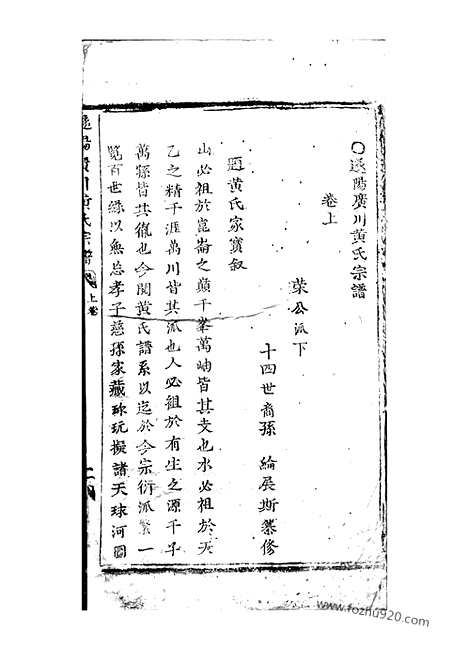 ○遂陽廣川黄氏宗譜
卷上
榮公派下
十四世裔孫 綸展斯纂修
題黄氏家寳叙
山必祖於崑崙之巔千峯萬岫皆其支也水必祖於天
乙之精千涯萬川皆其派也人必祖於有生之源千子
萬孫皆其徹也今閱黄氏譜系以迄於今宗衍派繁一
覽百世綠以無忘孝子慈孫家藏珎玩擬諸天球河圖
遂陽廣川黄氏宗譜
上卷
www.fozhu920.com